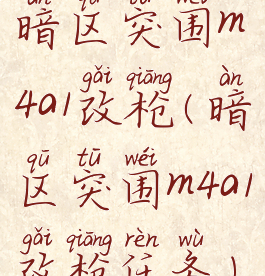 àn qū tū wéi
暗区突围m
gǎi qiāng àn
4a1改枪(暗
qū tū wéi
区突围m4a1
gǎi qiāng rèn wù
改枪任务)